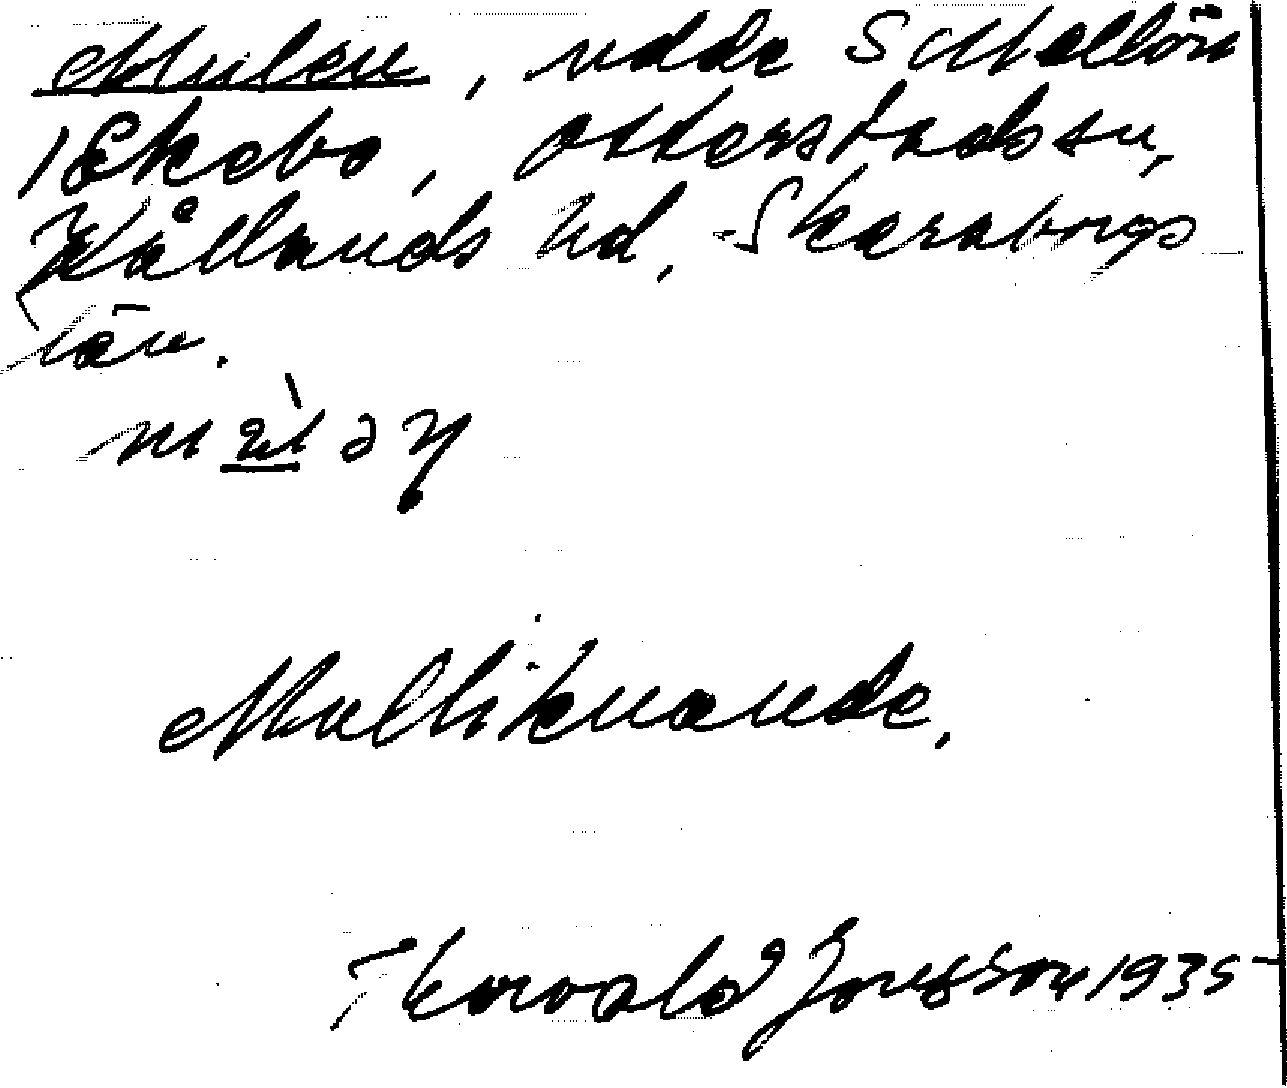 Mulen, udde S Mellön
i Ekebo, Otterstads sn,
Kållands hd, Skaraborgs
län.
Mulliknande,
Thorvald Jonsson 1935